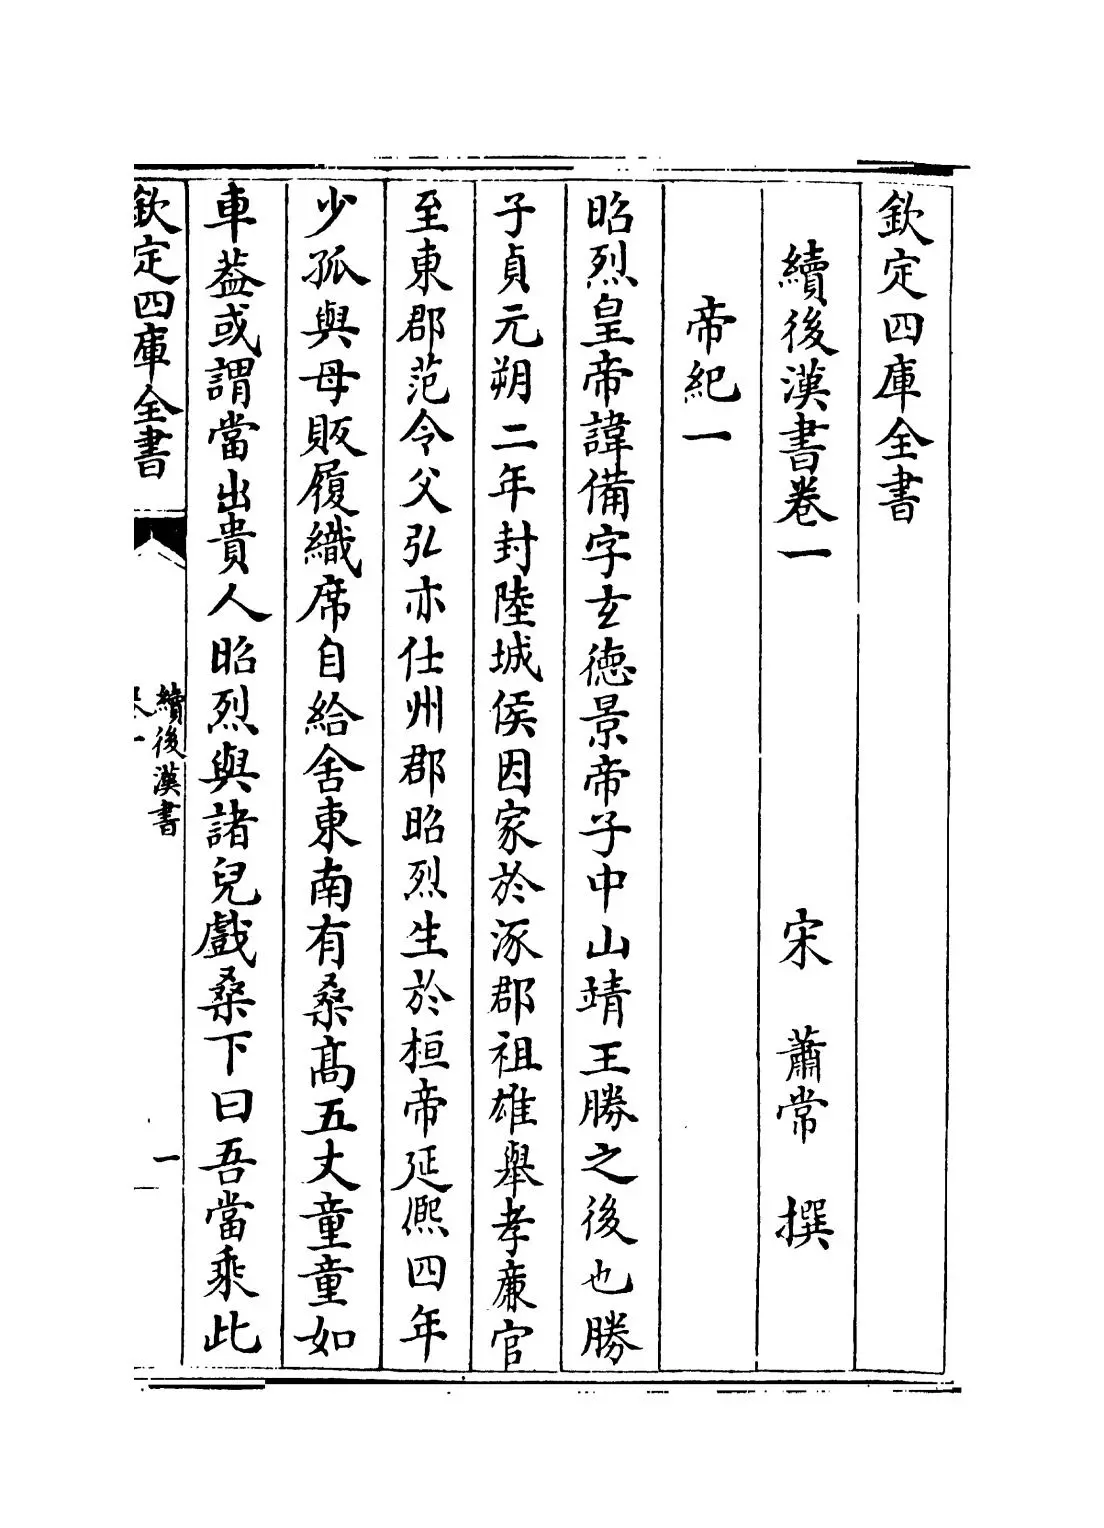 欽定四庫全書
續後漢書卷一
宋 蕭常 撰
帝紀一
昭烈皇帝諱備字玄德景帝子中山靖王勝之後也勝
子貞元朔二年封陸城侯因家於涿郡祖雄舉孝廉官
至東郡范令父弘亦仕州郡昭烈生於桓帝延熈四年
少孤與母販履織席自給舍東南有桑髙五丈童童如
車葢或謂當出貴人昭烈與諸兒戲桑下曰吾當乘此
欽定四庫全書
續後漢書
卷一
一